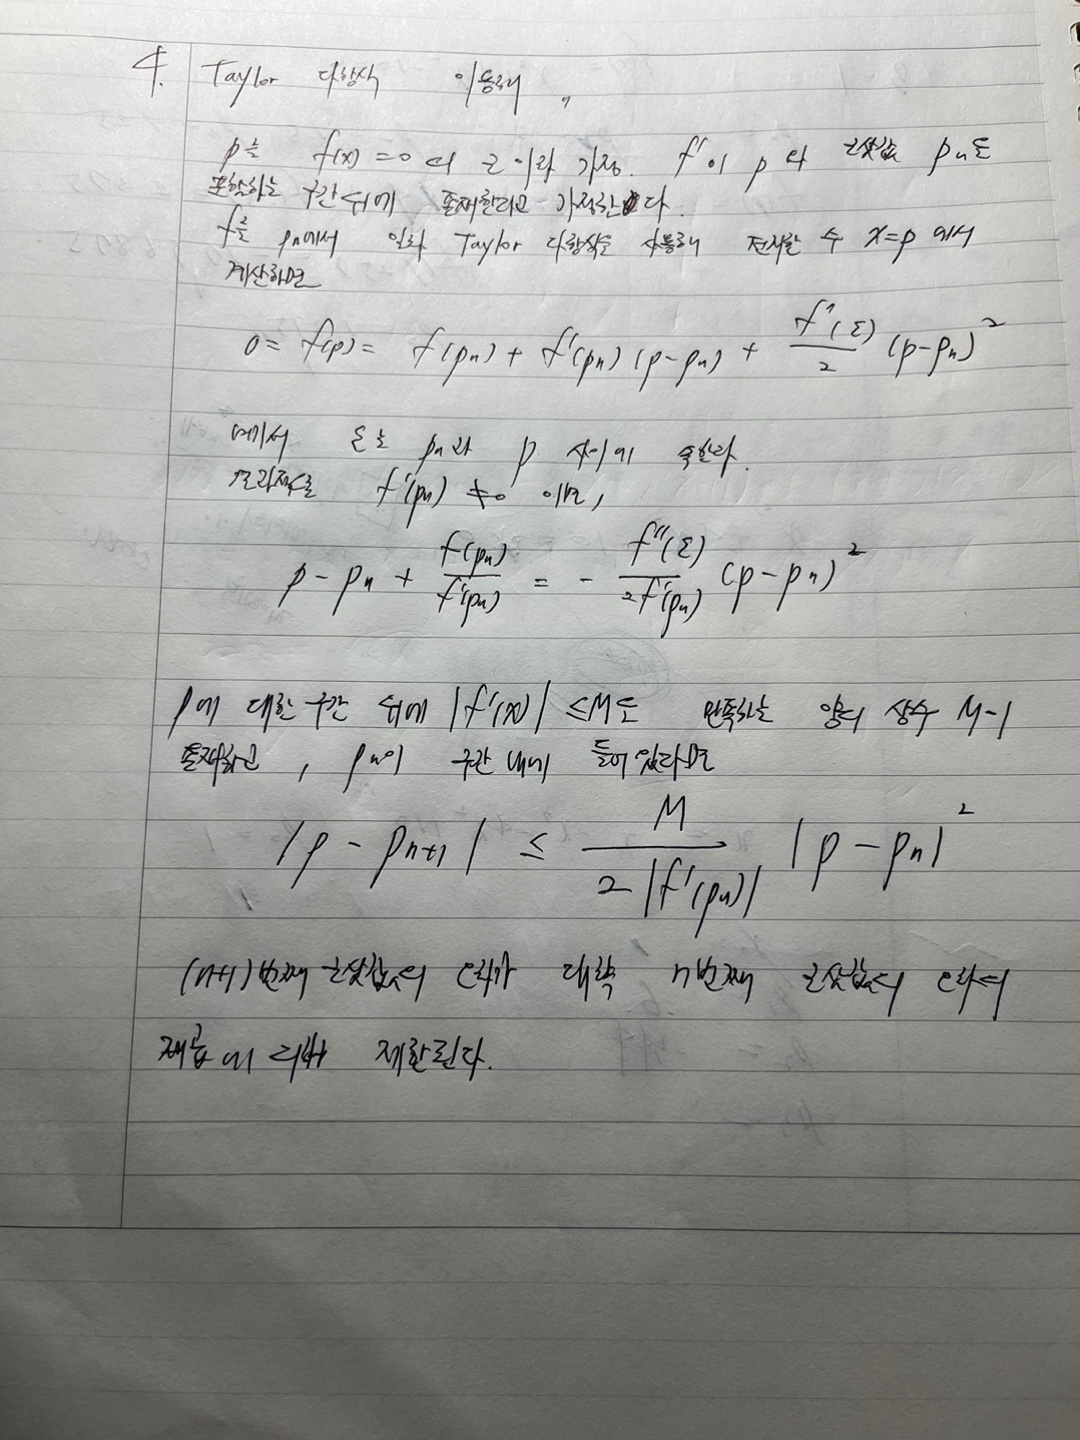 4. Taylor 다항식 이용해,
p는 f(x)=0 의 근 이라 가정. f'이 p 와 근삿값 pₙ도
포함하는 구간 위에 존재한다고 가정한다.
f를 pₙ에서 일차 Taylor 다항식을 사용해 전개한 수 x=p 에서
계산하면
0 = f(p) = f(pₙ) + f'(pₙ) (p-pₙ) + f'(ξ)/2 (p-pₙ)²
에서 은는 pₙ과 p 사이에 속한다.
f'(pₙ) ≠0 이면,
p - pₙ + f(pₙ)/f'(pₙ) = - f''(ξ)/2f'(pₙ) (p-pₙ)²
p에 대한 구간 위에 |f'(x)| ≤M도 만족하는 양의 상수 M이
존재하고, pₙ이 구간 내에 들어 있다면
|p - pₙ₊₁| ≤ M/2|f'(pₙ)| |p - pₙ|²
(n+1)번째 근삿값의 오차가 대략 n번째 근삿값의 오차의
제곱에 의해 제한된다.